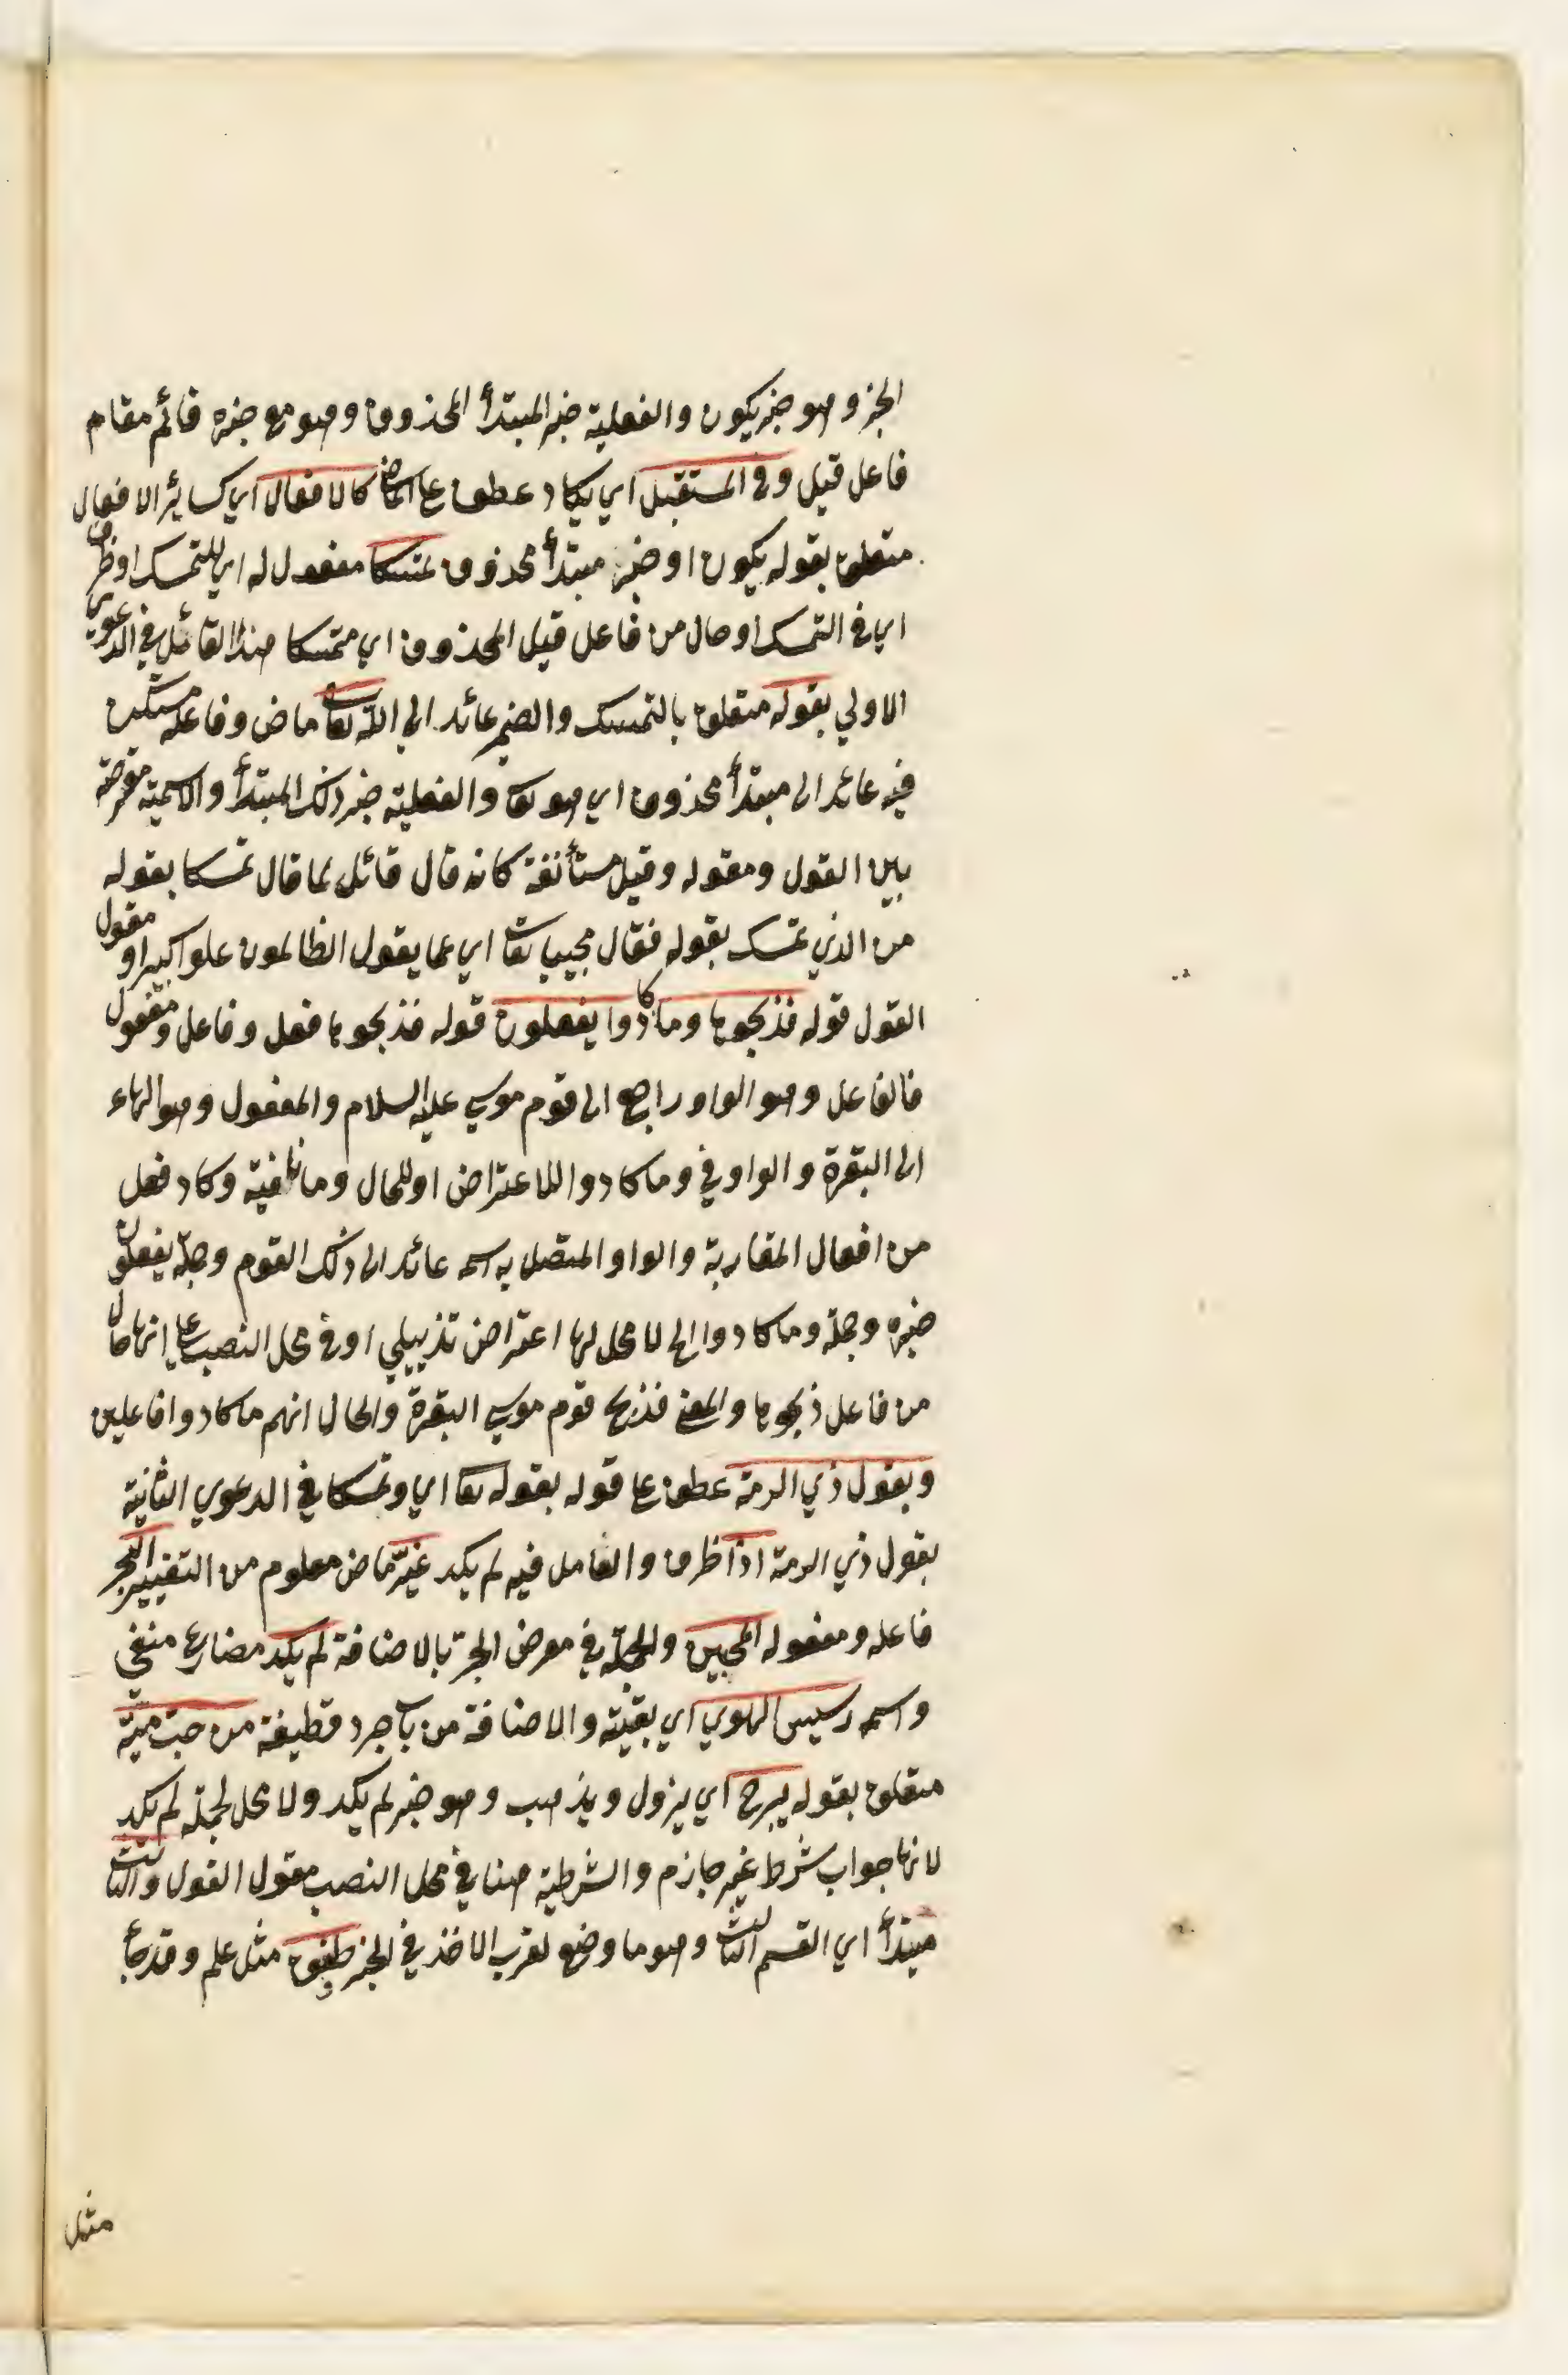 الجز وهو خبر يكون والفعلية خبر المبتدأ المحذوف وهو مع خبره قائم مقام
فاعل قيل وفى المستقبل اي يكاد عطف ع الماض كالافعال اي كسائر الافعال
متعلق بقوله يكون او خبر مبتدأ محذوف تمسكا مفعول له اي للتمسك او ظرف
اي فى التمسك او حال من فاعل قيل المحذوف اي متمسكا هذا القائل في الدعوي
الاولي بقوله متعلق بالتمسك والضمير عائد الي الله تعا ماض وفاعله مستكن
فيه عائد الى مبتدأ محذوف اي هو تعا والفعلية خبر ذلك المبتدأ والاسمية معترضة
بين القول ومقوله وقيل مستأنفة كانه قال قائل لما قال تمسكا بقوله
من الذي تمسك بقوله فقال مجيبا تعا اي عما يقول الظالمون علوا كبيرا ومقول
القول قوله فذبحوها وما كادوا يفعلون قوله فذبحوها فعل وفاعل ومفعول
فالفاعل وهو الواو راجع الى قوم موسي عليه السلام والمفعول وهو الهاء
الى البقرة والواو في وما كادوا للاعتراض او للحال وما نافية وكاد فعل
من افعال المقاربة والواو المتصل به اسمه عائد الى ذلك القوم وجملة يفعلون
خبره وجملة وما كادوا الخ لا محل لها اعتراض تذييلي او فى محل النصب عا انها حال
من فاعل ذبحوها والمعنى فذبح قوم موسي البقرة والحال انهم ما كادوا فاعلين
وبقول ذي الرمة عطف عا قوله بقوله تعا اي وتمسكا في الدعوي الثانية
بقول ذي الرمة اذا ظرف والعامل فيه لم يكد غيّر ماض معلوم من التغيير الهجر
فاعله ومفعوله المحبين والجملة في معرض الجرّ بالاضافة لم يكد مضارع منفي
واسمه رسيس الهوي اي بقيته والاضافة من باب جرد قطيفة من حبّ ميّة
متعلق بقوله يبرح اي يزول ويذهب وهو خبر لم يكد ولا محل لجملة لم يكد
لانها جواب شرط غير جازم والشرطية هنا في محل النصب مقول القول والثالث
مبتدأ اي القسم الثالث وهو ما وضع لقرب الاخذ في الخبر طفق مثل علم وقد جأ
مثل